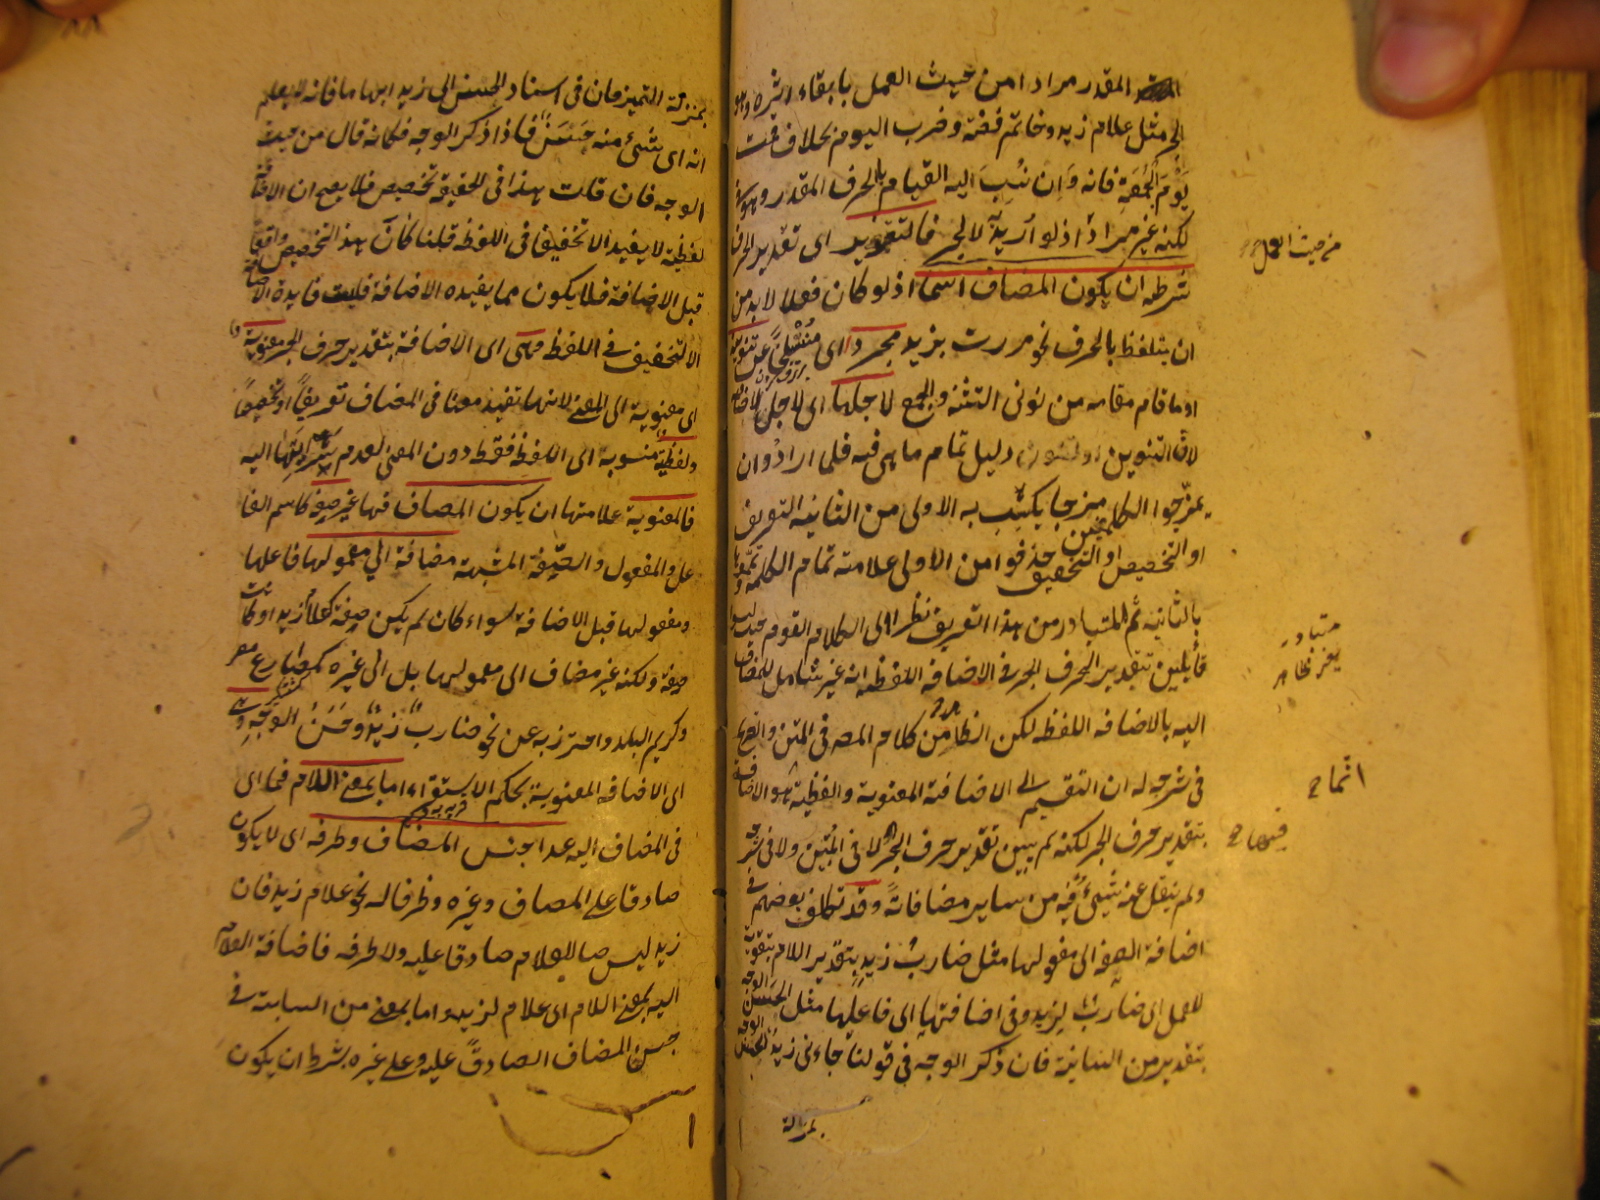 المقدر مرادا من حيث العمل بابقاء اثره وهو
الجر مثل غلام زيد وخاتم فضة وضرب اليوم بخلاف قمت
يَوْمَ الجُمعَةِ فانه وَاِن نُسِبَ اليه القيام بالحرف المقدر وهو في
لكنه غير مراد اذ لو اُريدَ لانجر فالتقدير اى تقدير الحرف
شرطه ان يكون المضاف اسما اذ لو كان فعلا لا بد من
ان يتلفظ بالحرف نحو مررت بزيد مجردا اى مُنْسَلِخًا عن تنوينه
او ما قام مقامه من نونى التثنه والجمع لاجلها اى لاجل الاضافه
لان التنوين او النون دليل تمام ما هى فيه فلما ارادوا ان
يمزجوا الكلمتين مزجا يكتسب به الاولى من الثانيه التعريف
او التخصيص او التخفيف حذفوا من الاولى علامة تمام الكلمة وتمموها
بالثانيه ثم المتبادر من هذا التعريف نظرا الى كلام القوم حيث ليسوا
قائلين بتقدير الحرف الجر في الاضافه اللفظيه انه غير شامل للمضاف
اليه بالاضافه اللفظيه لكن الظاهر من كلام المصه فى المتن والصريح
فى شرحه له ان التقسيم الى الاضافة المعنوية واللفظية هو الاضافة
بتقدير حرف الجر لكنه لم يبين تقدير حرف الجر لا فى المتن ولا فى شرحه
ولم ينقل عنه شيئ فيه من سائر مصنفاته وقد تكلف بعضهم في
اضافة الصفه الى مفعولها مثل ضاربُ زيدٍ بتقدير اللام تقوية
للعمل اى ضارب لزيد وفى اضافتها الى فاعلها مثل الحَسَنُ الوجه
بتقدير من البيانية فان ذكر الوجه فى قولنا جاءنى زيد الحسن الوجه
بمنزلة
من حيث العمل
متبادر
يعنى ظاهر
انما
فيها
بمنزلة التمييز فان فى اسناد الحسن الى زيد ابهاما فانه لا يعلم
انه اى شئ منه حَسَنٌ فاذا ذكر الوجه فكانه قال من حيث
الوجه فان قلت هذا فى الحقيقة تخصيص فلا يصح ان الاضافة
لفظية لا يفيد الا تخفيفا فى اللفظ قلنا كان هذا التخصيص واقعا
قبل الاضافة فلا يكون مما يفيده الاضافة فليست فايدة الاضافة
الا التخفيف فى اللفظ وهى اى الاضافة بتقدير حرف الجر معنوية
اى معنوية الى المعنى لانها تفيد معنا فى المضاف تعريفًا او تخصيصًا
ولفظية منسوبة الى اللفظ فقط دون المعنى لعدم سرايتها اليه
فالمعنوية علامتها ان يكون المضاف فيها غير صفة كاسم الفا
عل والمفعول والصّفة المشبهة مضافة الى معمولها فاعلها
ومفعولها قبل الاضافة سواء كان لم يكن صفة كغلام زيد او كانت
صفة ولكنه غير مضاف الى معمولها بل الى غيره كمصارع مصر
وكريم البلد واحترز به عن نحو ضاربُ زيدٍ وحَسَنُ الوَجْهِ وهى
اى الاضافه المعنوية بحكم الاستقراء اما بمعنى اللام فيما اى
فى المضاف اليه عدا جنس المضاف وظرفه اى لا يكون
صادقا على المضاف وغيره وظرفا له نحو غلام زيد فان
زيد ليس صا للغلام صادقا عليه ولا ظرفه فاضافة الغلام
اليه بمعنى اللام اى غلام لزيد واما بمعنى من البيانية فى
جنس المضاف الصادق عليه وعلى غيره بشرط ان يكون